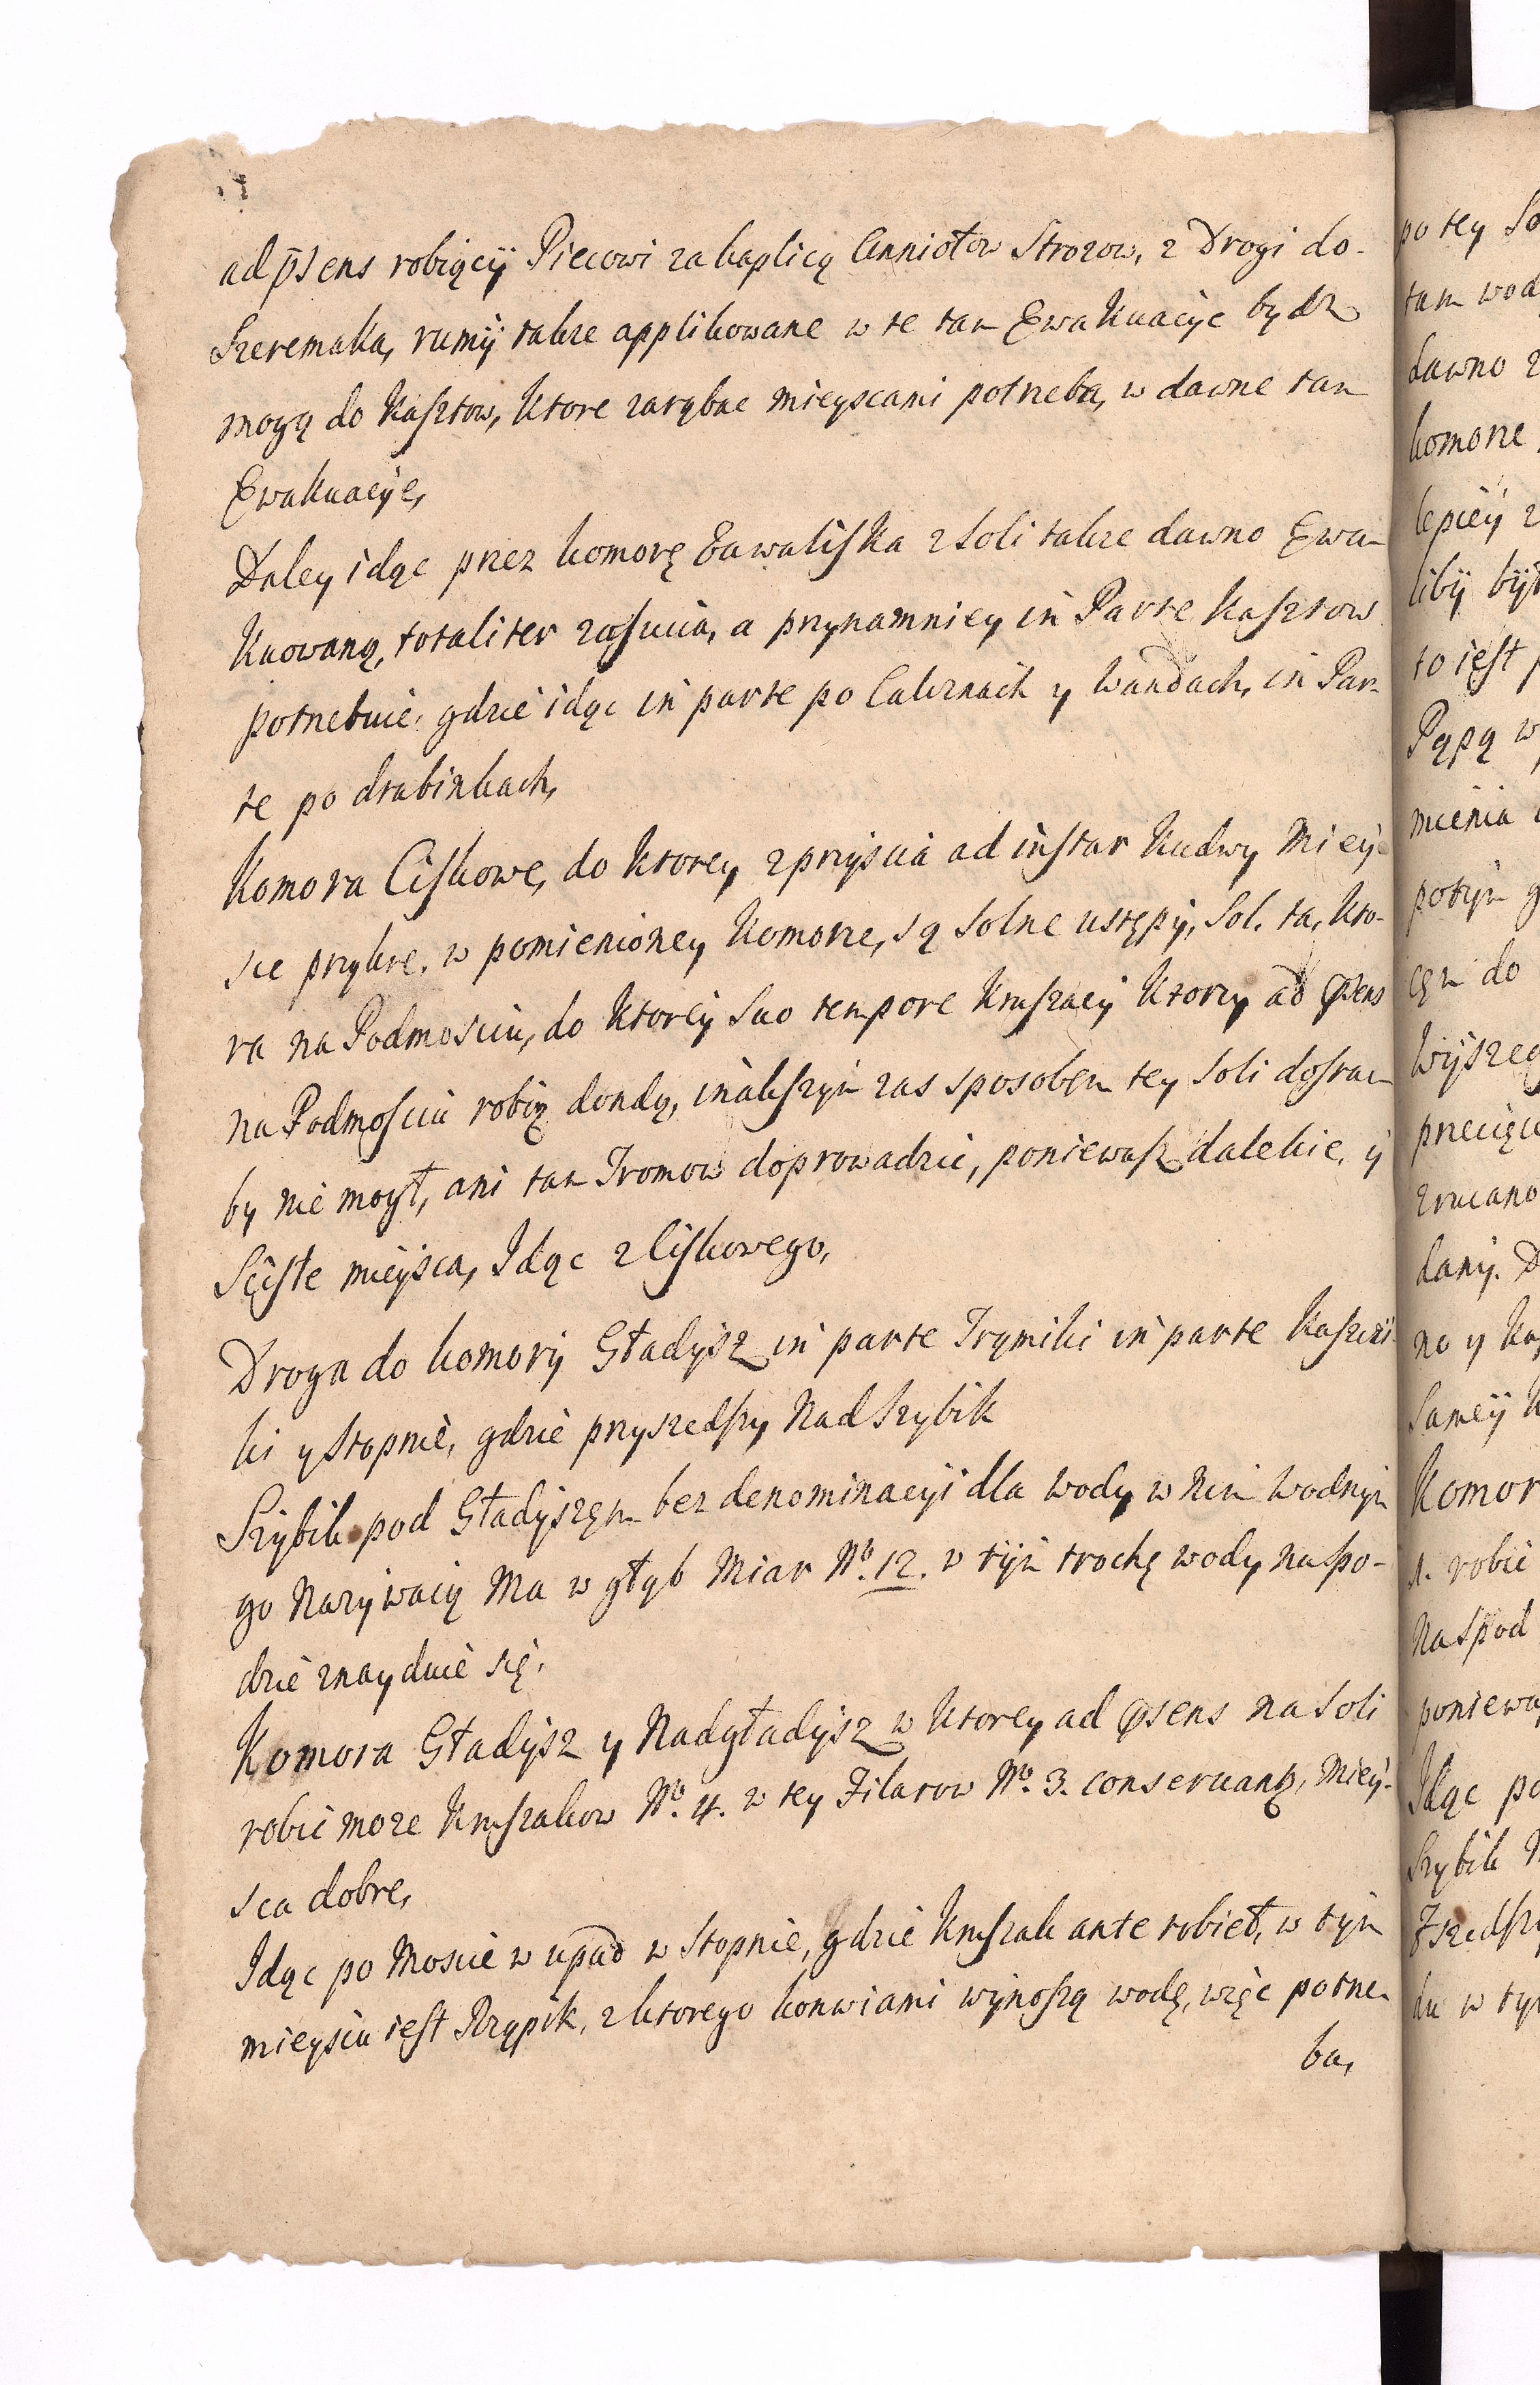 ad p̄sens robiący Piecowi za kaplicą Anniołow Strozow, z Drogi do-
Szeremaka, rumÿ takze applikowane w te tam Ewakuacÿe bydz
mogą do Kasztow, Ktore zarąbac mieyscami potrzeba, w dawne tam
Ewakuacÿe,
Daley idąc przez komorę Zawaliska z Soli takze dawno Ewa-
Kuowaną, totaliter zaſucia, a przynamniey in Parte Kasztow
potrzebuie, gdzie idąc in parte po Calcznach y Wandach, in Par-
te po drabinkach,
Komora Liskowe, do Ktorey z przyscia ad instar Kudwy Mieÿ-
sce przykre. w pomienioney Komorze, są Solne ustępÿ, Sol. ta, Kto-
ra na Podmosciu, do Ktorey Suo tempore Kruszacÿ Ktorzy ad p̄sens
na Podmosciu robią dondą, inakszÿm zas sposobem tey Soli dostac
by nie mogł, ani tam Tromow doprowadzic, poniewasz dalekie, ÿ
Sciste mieysca, Idąc z Liskowego,
Droga do komorÿ Gładÿsz in parte Trymiki in parte Kaszczi-
ki y Stopnie, gdzie przyszedszy Nad Szybik
Szÿbik pod Gładyszem bez denominacÿi dla wody w nim Wodnÿm
go Nazÿwaią Ma w głąb Miar No. 12. w tÿm trochę wody na spo-
dzie znayduie się.
Komora Gładÿsz y Nadgładÿsz w Ktorey ad p̄sens na Soli
robic moze Kruszakow No. 4. w tey Filarow No. 3. conseruantz, Mieÿ-
sca dobre,
Idąc po Moscie w upad w Stopnie, gdzie Kruszak ante robieł, w tÿm
mieyscu iest Rząpik, z ktorego konwiami wÿnoszą wodę, więc potrze-
ba,